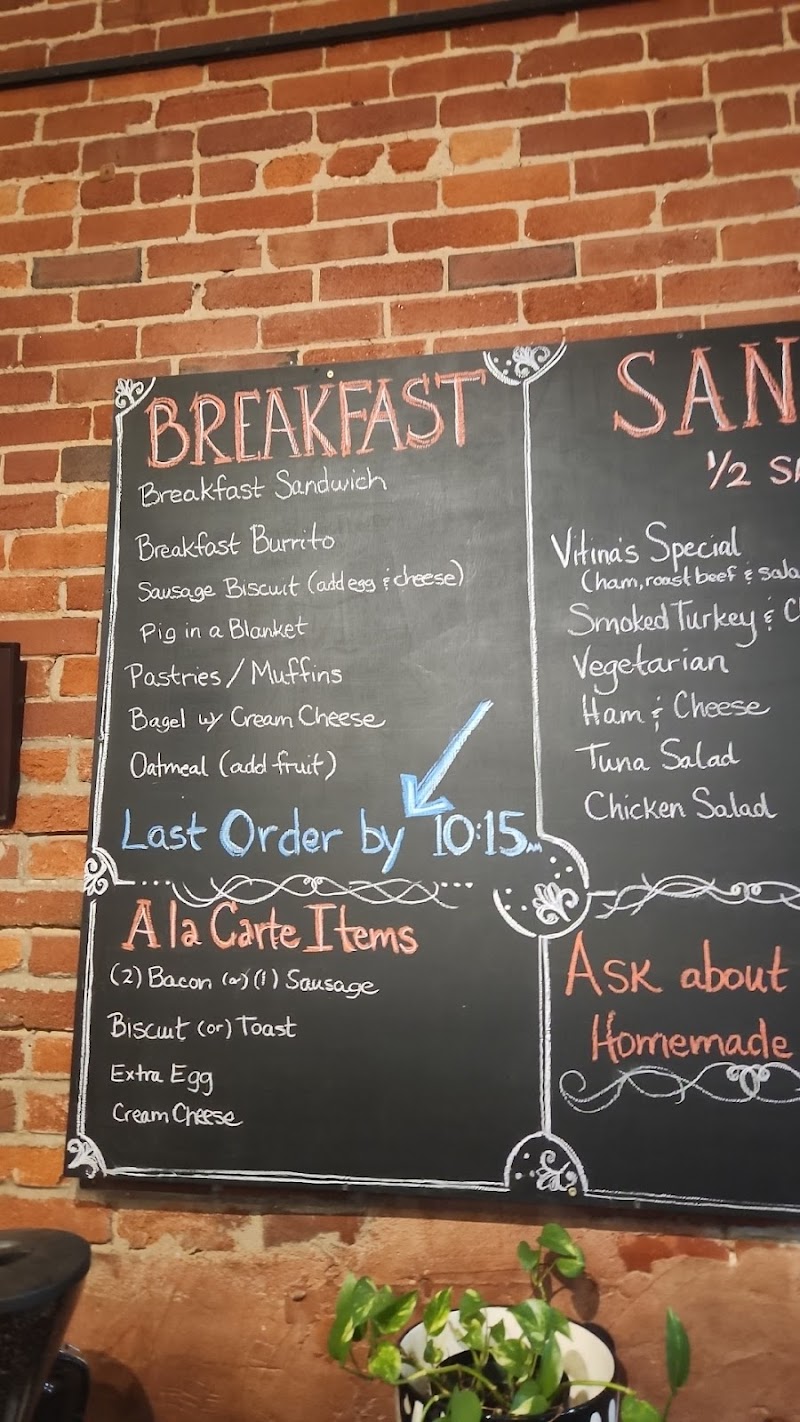 BREAKFAST
Breakfast Sandwich
Breakfast Burrito
Sausage Biscuit (add egg & cheese)
Pig in a Blanket
Pastries / Muffins
Bagel w/ Cream Cheese
Oatmeal (add fruit)
Last Order by 10:15 AM
A la Carte Items
(2) Bacon (or) (1) Sausage
Biscuit (or) Toast
Extra Egg
Cream Cheese
SAN
1/2 SA
Vitina's Special
(ham, roast beef & sala
Smoked Turkey & C
Vegetarian
Ham & Cheese
Tuna Salad
Chicken Salad
Ask about
Homemade